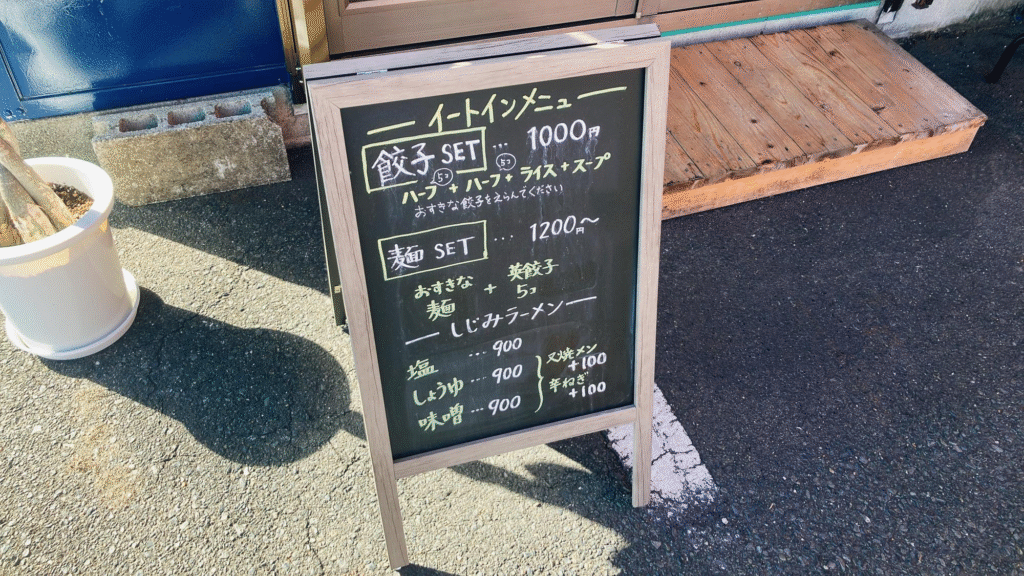 イートインメニュー
餃子 SET … 1000円
ハーフ 5コ + ハーフ 5コ + ライス + スープ
おすきな餃子をえらんでください
麺 SET … 1200円〜
おすきな麺 + 英餃子 5コ
しじみラーメン
塩 … 900
しょうゆ … 900
味噌 … 900
叉焼メン +100
辛ねぎ +100